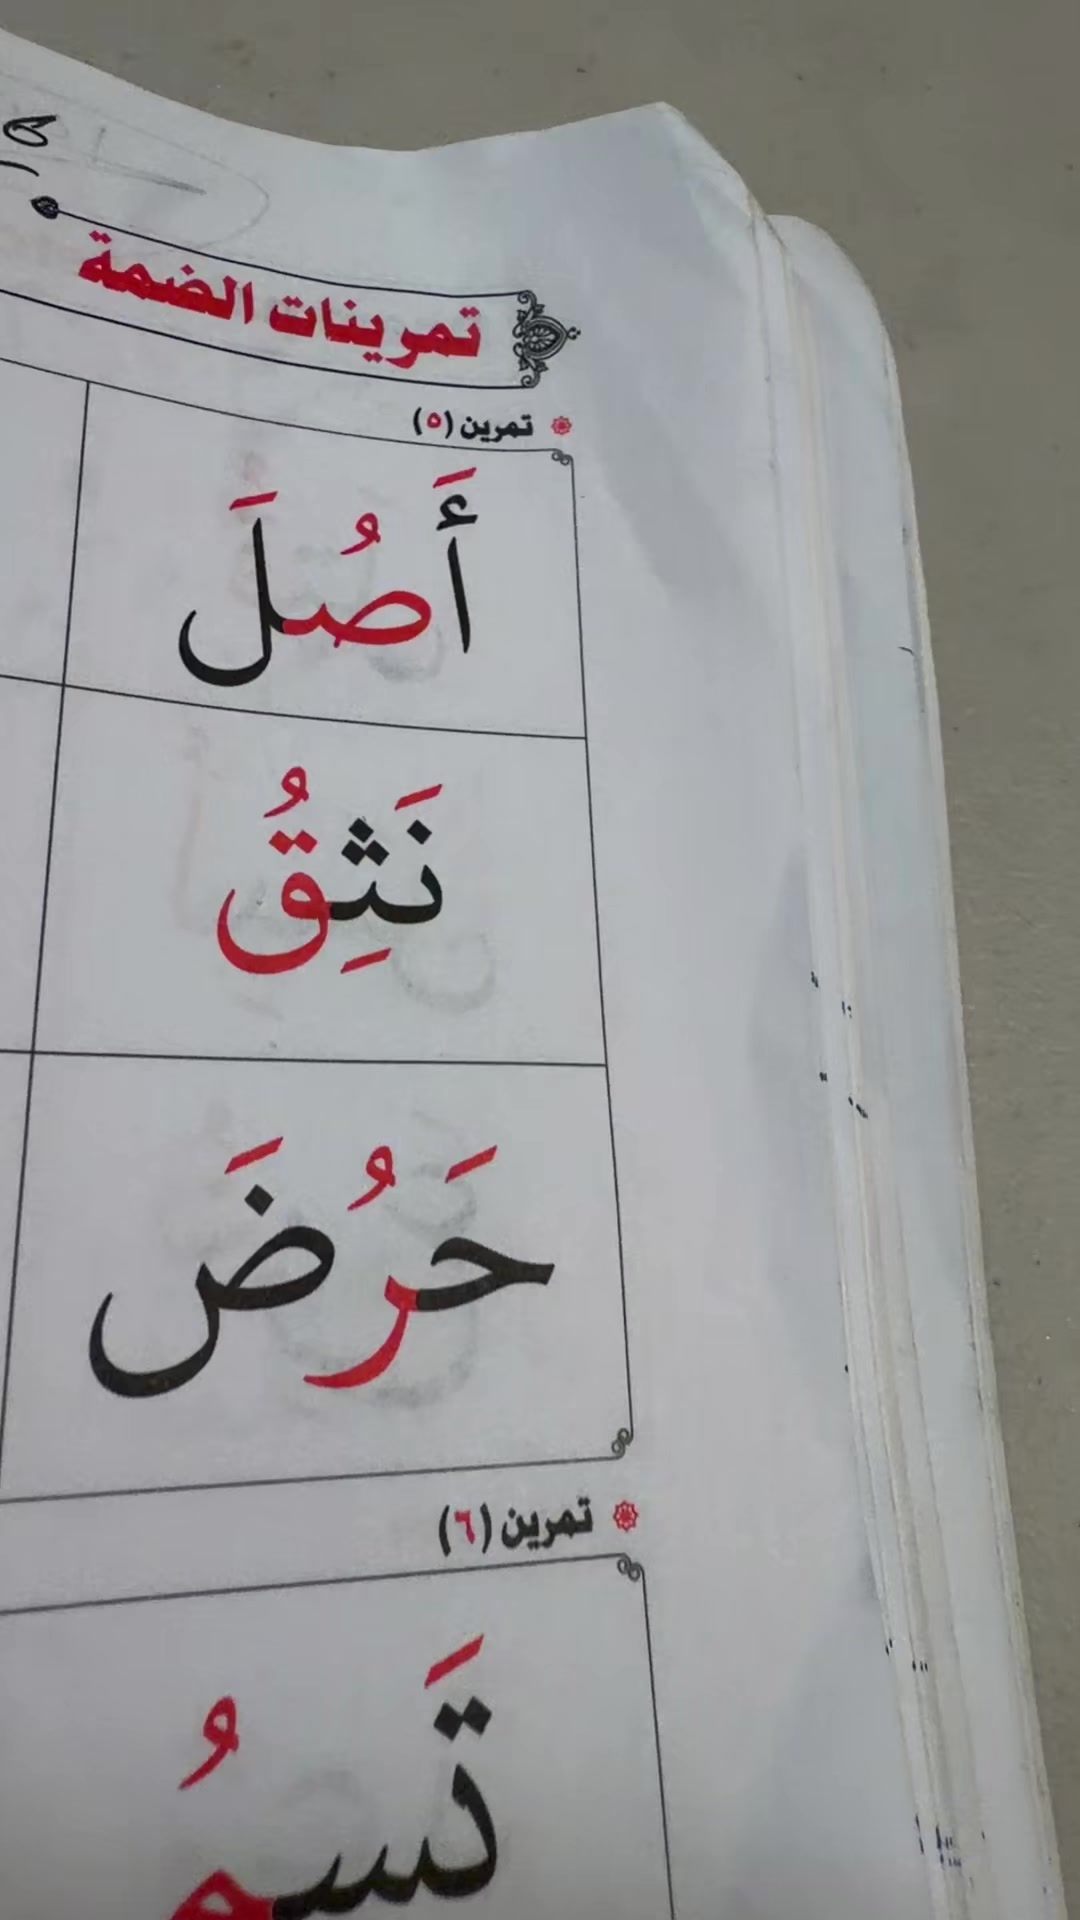 تمرينات الضمة
تمرين (٥)
أَصُلَ
نَثِقُ
حَرُضَ
تمرين (٦)
تَسمُ